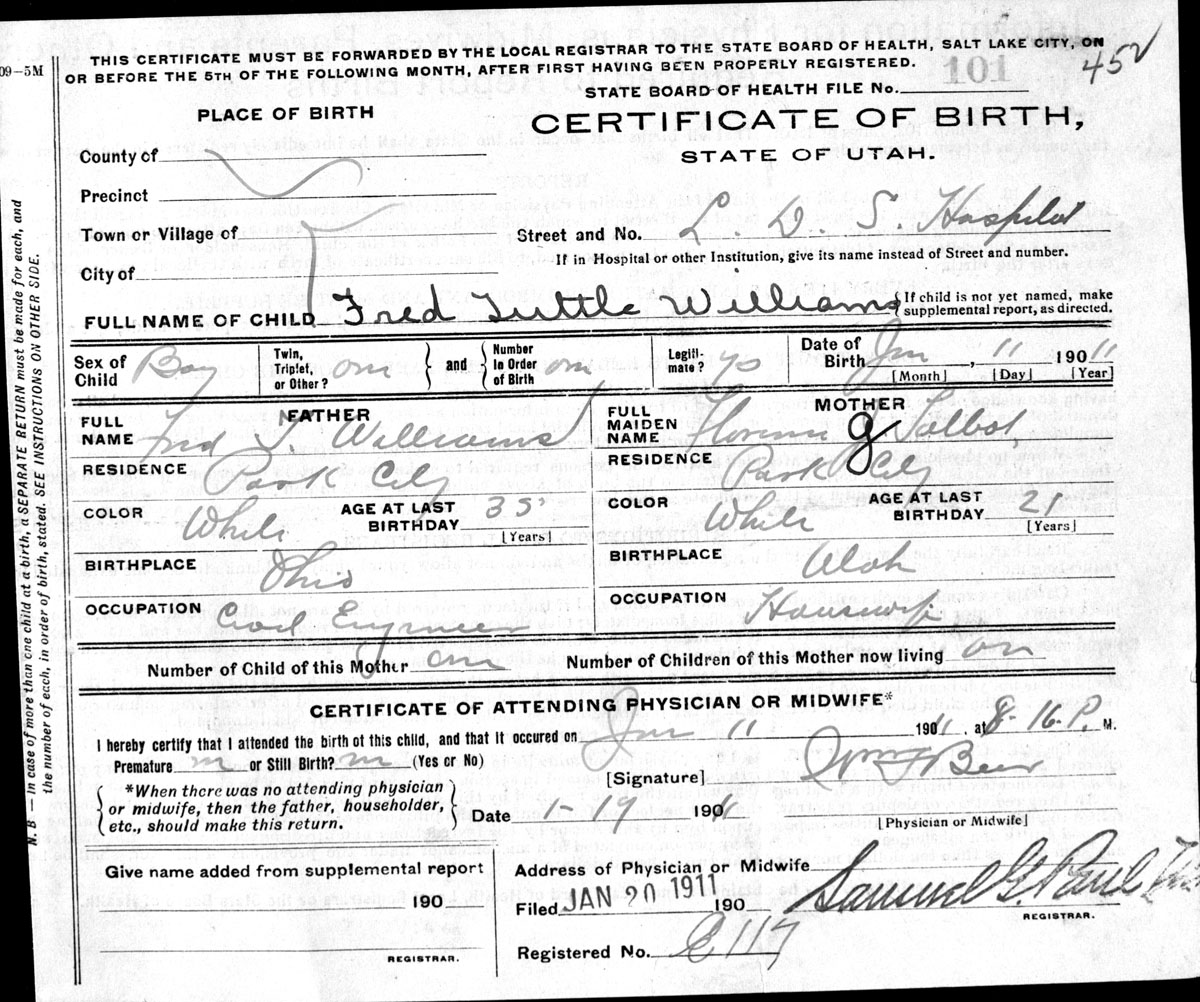 09—5M
THIS CERTIFICATE MUST BE FORWARDED BY THE LOCAL REGISTRAR TO THE STATE BOARD OF HEALTH, SALT LAKE CITY, ON
OR BEFORE THE 5TH OF THE FOLLOWING MONTH, AFTER FIRST HAVING BEEN PROPERLY REGISTERED.
101
45
STATE BOARD OF HEALTH FILE No.
PLACE OF BIRTH
CERTIFICATE OF BIRTH,
STATE OF UTAH.
County of
Precinct
Town or Village of
Street and No. L. D. S. Hospital
If in Hospital or other Institution, give its name instead of Street and number.
City of
FULL NAME OF CHILD Fred Tuttle Williams
If child is not yet named, make
supplemental report, as directed.
Sex of
Child Boy
Twin,
Triplet,
or Other?
and
Number
In Order
of Birth
Legiti-
mate? yes
Date of
Birth Jan 11 1901 11
[Month] [Day] [Year]
FATHER
FULL
NAME Fred T. Williams
RESIDENCE Park City
COLOR White AGE AT LAST
BIRTHDAY 35
[Years]
BIRTHPLACE Ohio
OCCUPATION Civil Engineer
MOTHER
FULL
MAIDEN
NAME Florence J Talbot
RESIDENCE Park City
COLOR White AGE AT LAST
BIRTHDAY 21
[Years]
BIRTHPLACE Utah
OCCUPATION Housewife
Number of Child of this Mother one Number of Children of this Mother now living one
CERTIFICATE OF ATTENDING PHYSICIAN OR MIDWIFE*
I hereby certify that I attended the birth of this child, and that it occured on Jan 11 1911, at 8-16-P M.
Premature no or Still Birth? no (Yes or No)
[Signature] Wm F Beer
*When there was no attending physician
or midwife, then the father, householder,
etc., should make this return.
Date 1-19 1911
[Physician or Midwife]
Give name added from supplemental report
190
REGISTRAR.
Address of Physician or Midwife
Filed JAN 20 1911 190
Samuel G. Paul
REGISTRAR.
Registered No. 117
N. B. — In case of more than one child at a birth, a SEPARATE RETURN must be made for each, and
the number of each, in order of birth, stated. SEE INSTRUCTIONS ON OTHER SIDE.